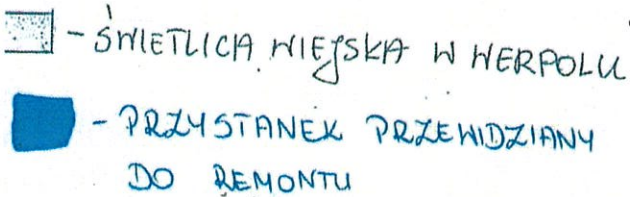 - ŚWIETLICA WIEJSKA W WERPOLU
- PRZYSTANEK PRZEWIDZIANY
DO REMONTU